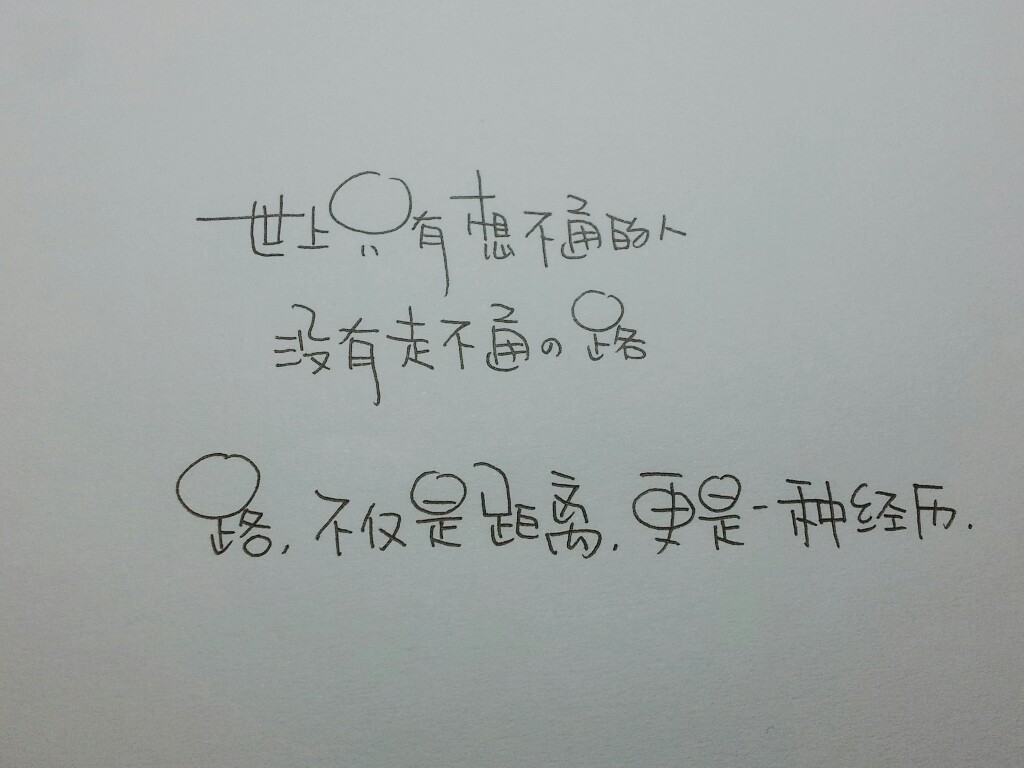 世上只有想不通的人
没有走不通の路
路,不仅是距离,更是一种经历.